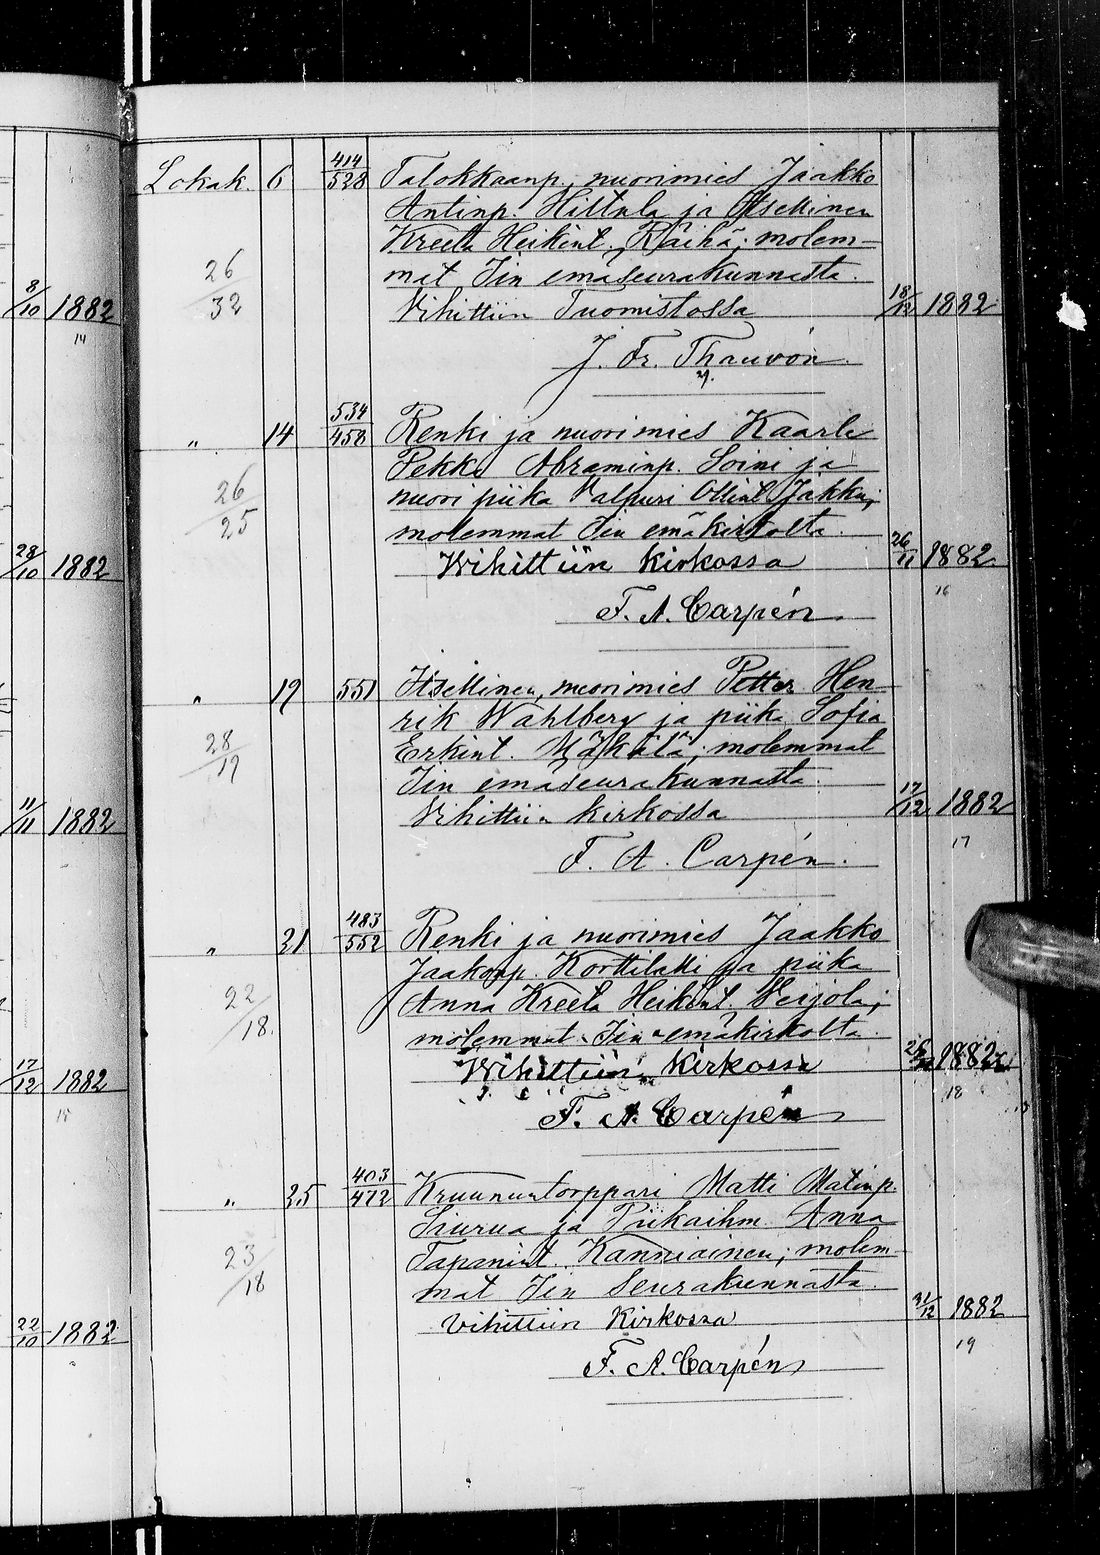 8/10 1882
14
28/10 1882
11/11 1882
17/12 1882
15
22/10 1882
Lokak. 6 414/528 Talokkaanp. nuorimies Jaakko
Antinp. Hiltula ja Itsellinen
Kreeta Heikint. Räihä; molem-
mat Iin emäseurakunnasta.
26/32
Vihittiin Tuomistossa 18/12 1882
J. Fr. Thauvón
" 14 534/458 Renki ja nuorimies Kaarle
Pekka Abraminp. Soini ja
nuori piika Valpuri Ollint. Jakku;
26/25
molemmat Iin emäkirkolta.
Wihittiin Kirkossa 26/11 1882
16
F. A. Carpén
" 19 551 Itsellinen, nuorimies Petter Hen
rik Wahlberg ja piika Sofia
Erkint. Mäkälä; molemmat
28/19
Iin emäseurakunnasta.
Vihittiin kirkossa 17/12 1882
17
F. A. Carpén.
" 21 483/552 Renki ja nuorimies Jaakko
Jaakonp. Korttilatti ja piika
Anna Kreeta Heikint. Veijola;
22/18.
molemmat Iin emäkirkolta.
Wihittiin Kirkossa 1882
18
F. A. Carpén
" 25 403/472 Kruununtorppari Matti Matinp.
Siurua ja Piikaihm. Anna
Tapanint. Kanniainen; molem-
23/18
mat Iin Seurakunnasta.
Vihittiin Kirkossa 31/12 1882
19
F. A. Carpén